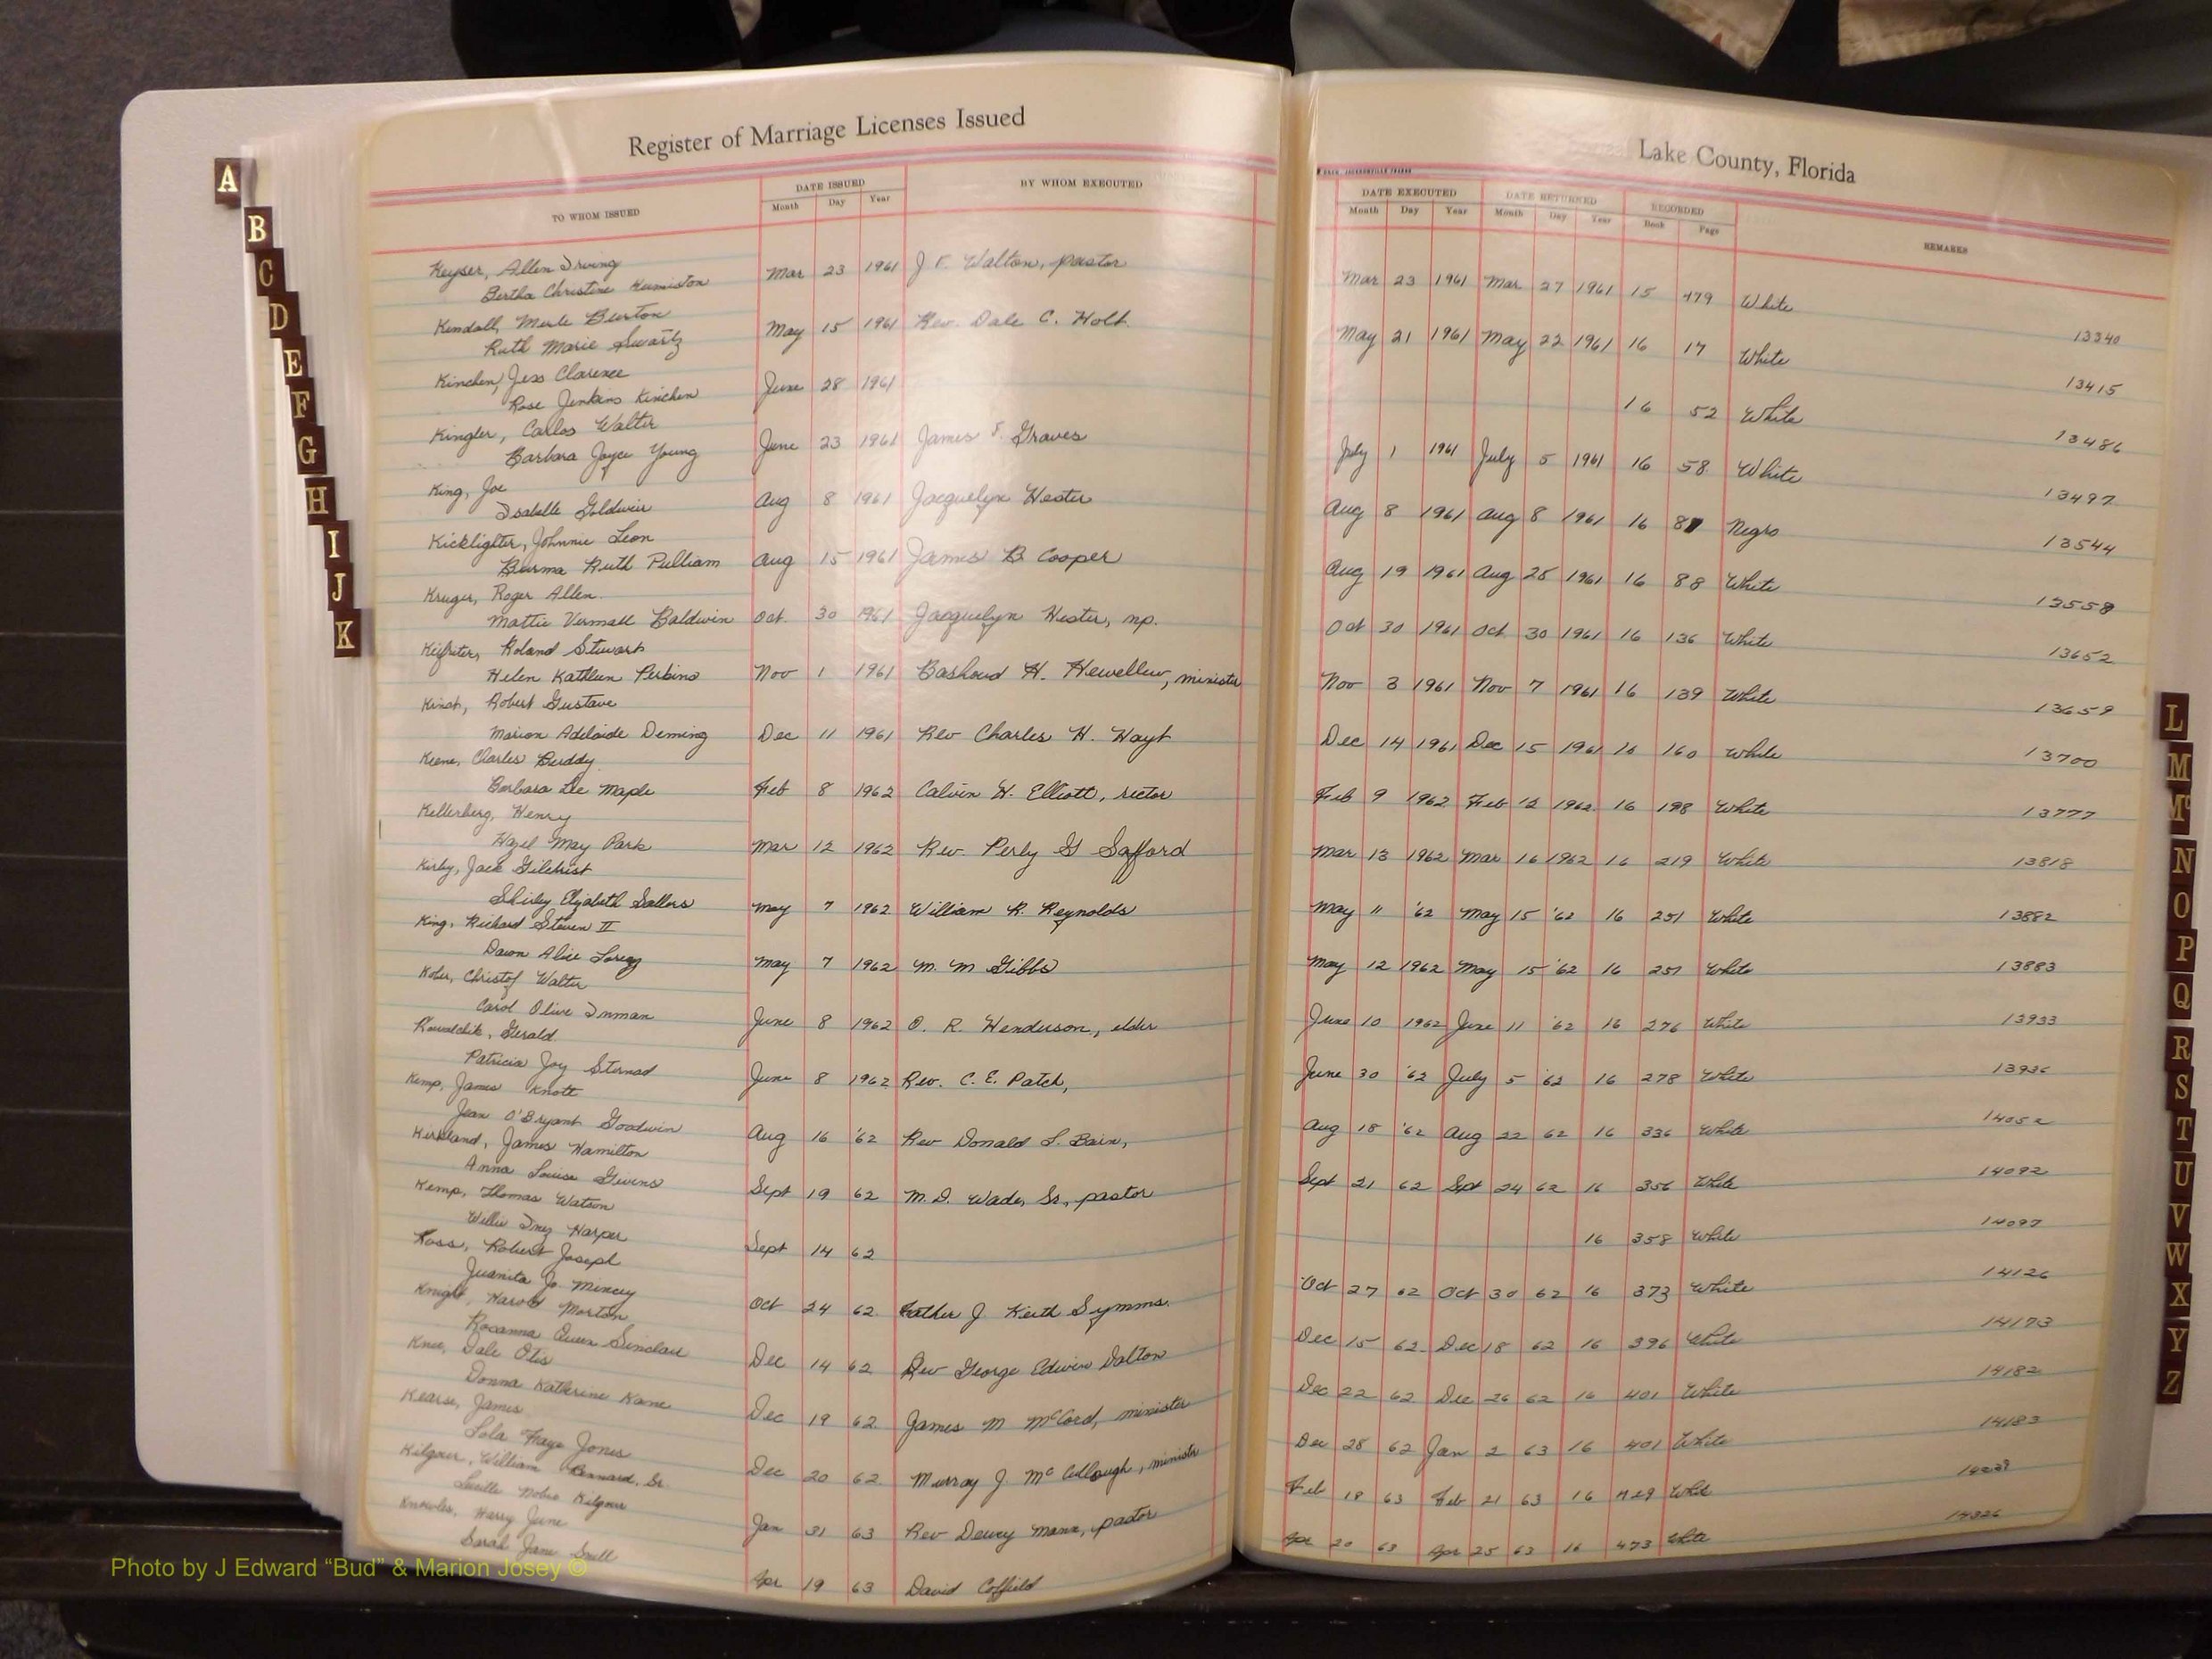 Register of Marriage Licenses Issued
Lake County, Florida
TO WHOM ISSUED DATE ISSUED Month Day Year BY WHOM EXECUTED
DATE EXECUTED Month Day Year DATE RETURNED Month Day Year RECORDED Book Page REMARKS
Keyser, Allen Irving
Bertha Christine Humiston Mar 23 1961 J F. Walton, pastor Mar 23 1961 Mar 27 1961 15 479 White 13340
Kendall, Merle Burton
Ruth Marie Swartz May 15 1961 Rev. Dale C. Holt. May 21 1961 May 22 1961 16 17 White 13415
Kinchen, Jess Clarence
Rose Jenkins Kinchen June 28 1961 16 52 White 13486
Kingler, Carlos Walter
Barbara Joyce Young June 23 1961 James F. Graves July 1 1961 July 5 1961 16 58 White 13497
King, Joe
Isabelle Goldwin Aug 8 1961 Jacquelyn Hester Aug 8 1961 Aug 8 1961 16 Negro 13544
Kicklighter, Johnnie Leon
Burma Ruth Pulliam Aug 15 1961 James B Cooper Aug 19 1961 Aug 25 1961 16 88 White 13558
Kruger, Roger Allen.
Mattie Vermall Baldwin Oct. 30 1961 Jacquelyn Hester, np. Oct 30 1961 Oct 30 1961 16 136 White 13652
Roland Stewart
Helen Kathleen Perkins Nov 1 1961 H. minister Nov 3 1961 Nov 7 1961 16 139 White 13659
Robert Gustave
Marion Adelaide Deming Dec 11 1961 Rev Charles H. Hoyt Dec 14 1961 Dec 15 1961 16 160 White 13700
Keene, Charles Buddy
Barbara Lee Maple Feb 8 1962 Calvin H. Elliott, rector Feb 9 1962 Feb 12 1962 16 198 White 13777
Kellerberg, Henry
Hazel May Park Mar 12 1962 Rev. Perly G Safford Mar 13 1962 Mar 16 1962 16 219 White 13818
Kirby, Jack Gilchrist
Shirley Elizabeth Sellers May 7 1962 William R. Reynolds May 11 '62 May 15 '62 16 251 White 13882
King, Richard Steven II
Dawn Alice May 7 1962 M. M Gibbs May 12 1962 May 15 '62 16 251 White 13883
Kober, Christof Walter
Carol Olive Inman June 8 1962 O. R. Henderson, elder June 10 1962 June 11 '62 16 276 White 13933
Kowalchik, Gerald
Patricia Joy Sternad June 8 1962 Rev. C. E. Patch, June 30 '62 July 5 '62 16 278 White 13936
Kemp, James Knott
Jean O'Bryant Goodwin Aug 16 '62 Rev Donald L. Bain, Aug 18 '62 Aug 22 62 16 336 White 14052
Kirkland, James Hamilton
Anna Louise Givens Sept 19 62 M. D. Wade, Sr., pastor Sept 21 62 Sept 24 62 16 356 White 14092
Kemp, Thomas Watson
Willie Inez Harper Sept 14 62 16 358 White 14097
Koss, Robert Joseph
Juanita Jo. Mincey Oct 24 62 Father J. Keith Symms. Oct 27 62 Oct 30 62 16 373 White 14126
Knight, Harold Morton
Rosanna Queen Sinclair Dec 14 62 Rev George Edwin Dalton Dec 15 62 Dec 18 62 16 396 White 14173
Knee, Dale Otis
Donna Katherine Kane Dec 19 62 James M McCord, minister Dec 22 62 Dec 26 62 16 401 White 14182
Kearse, James
Lola Faye Jones Dec 20 62 Murray J. McCullough, minister Dec 28 62 Jan 2 63 16 401 White 14183
Kilgour, William Bernard, Sr.
Lucille Kilgour Jan 31 63 Rev Dewey Mann, pastor Feb 18 63 Feb 21 63 16 429 White
Knowles, Harry June
Sarah Jane Snell Apr 19 63 David Coffield Apr 20 63 Apr 25 63 16 473 White 14326
A
B
C
D
E
F
G
H
I
J
K
L
M
Mc
N
O
P
Q
R
S
T
U
V
W
X
Y
Z
Photo by J Edward “Bud” & Marion Josey ©